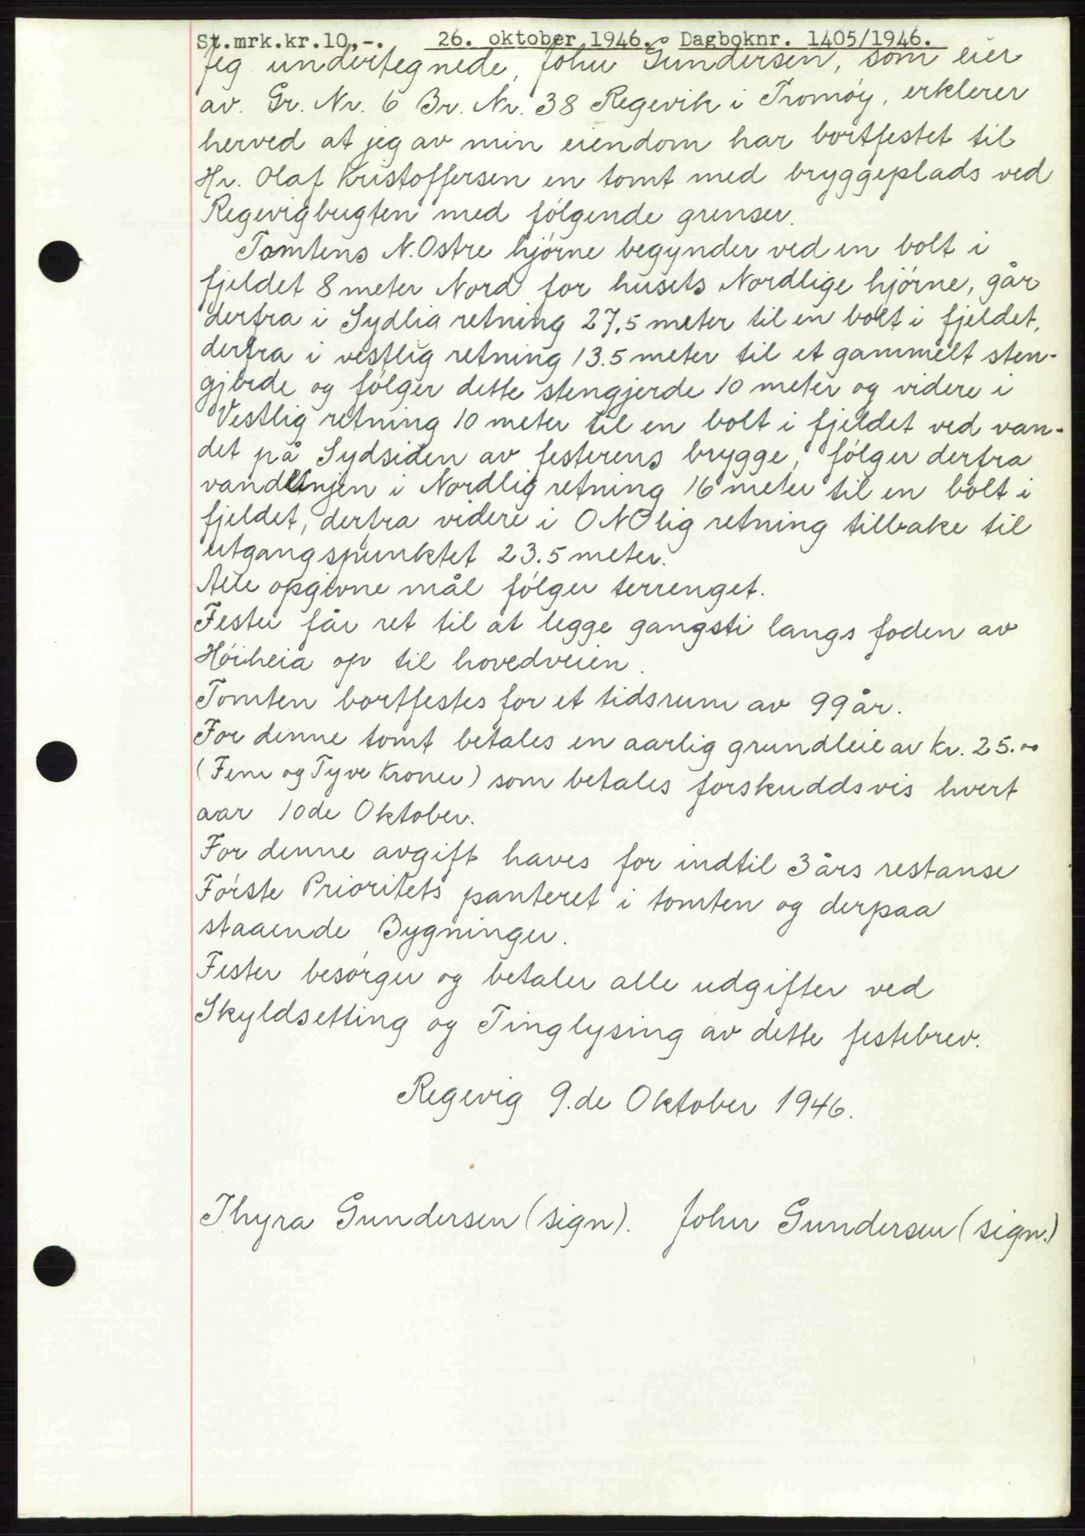 St.mrk.kr.10,-. 26. oktober 1946. Dagboknr. 1405/1946.
Jeg undertegnede, John Gundersen, som eier
av. Gr. Nr. 6 Br. Nr. 38 Regevik i Tromøy, erklerer
herved at jeg av min eiendom har bortfestet til
Hr. Olaf Kristoffersen en tomt med bryggeplads ved
Regevigbugten med følgende grenser.
Tomtens N.Ostre hjørne begynder ved en bolt i
fjeldet 8 meter Nord for husets Nordlige hjørne, går
derfra i Sydlig retning 27,5 meter til en bolt i fjeldet,
derfra i vestlig retning 13.5 meter til et gammelt sten-
gjerde og følger dette stengjerde 10 meter og videre i
Vestlig retning 10 meter til en bolt i fjeldet ved van-
det på Sydsiden av festerens brygge, følger derfra
vandlinjen i Nordlig retning 16 meter til en bolt i
fjeldet, derfra videre i ONOlig retning tilbake til
utgangspunktet 23.5 meter.
Alle opgivne mål følger terrenget.
Fester får ret til at legge gangsti langs foden av
Høiheia op til hovedveien.
Tomten bortfestes for et tidsrum av 99 år.
For denne tomt betales en aarlig grundleie av Kr. 25.00
(Fem og Tyve Kroner) som betales forskuddsvis hvert
aar 10de Oktober.
For denne avgift haves for indtil 3 års restanse
Første Prioritets panteret i tomten og derpaa
staaende Bygninger.
Fester besørger og betaler alle udgifter ved
Skyldsetting og Tinglysing av dette festebrev.
Regevig 9.de Oktober 1946.
Thyra Gundersen (sign). John Gundersen (sign.)